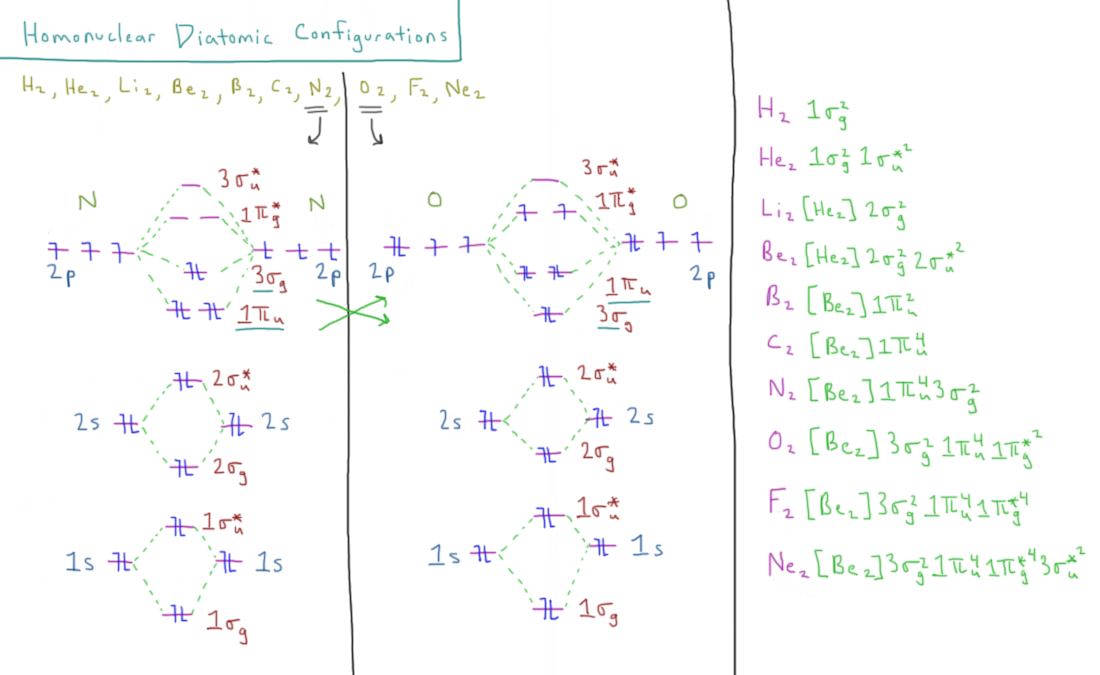 Homonuclear Diatomic Configurations
H₂, He₂, Li₂, Be₂, B₂, C₂, N₂, O₂, F₂, Ne₂
3σᵤ*
1π_g*
N
N
2p
2p
3σ_g
1πᵤ
2σᵤ*
2s
2s
2σ_g
1σᵤ*
1s
1s
1σ_g
3σᵤ*
1π_g*
O
O
2p
2p
1πᵤ
3σ_g
2σᵤ*
2s
2s
2σ_g
1σᵤ*
1s
1s
1σ_g
H₂ 1σ_g²
He₂ 1σ_g² 1σᵤ*²
Li₂ [He₂] 2σ_g²
Be₂ [He₂] 2σ_g² 2σᵤ*²
B₂ [Be₂] 1πᵤ²
C₂ [Be₂] 1πᵤ⁴
N₂ [Be₂] 1πᵤ⁴ 3σ_g²
O₂ [Be₂] 3σ_g² 1πᵤ⁴ 1π_g*²
F₂ [Be₂] 3σ_g² 1πᵤ⁴ 1π_g*⁴
Ne₂ [Be₂] 3σ_g² 1πᵤ⁴ 1π_g*⁴ 3σᵤ*²